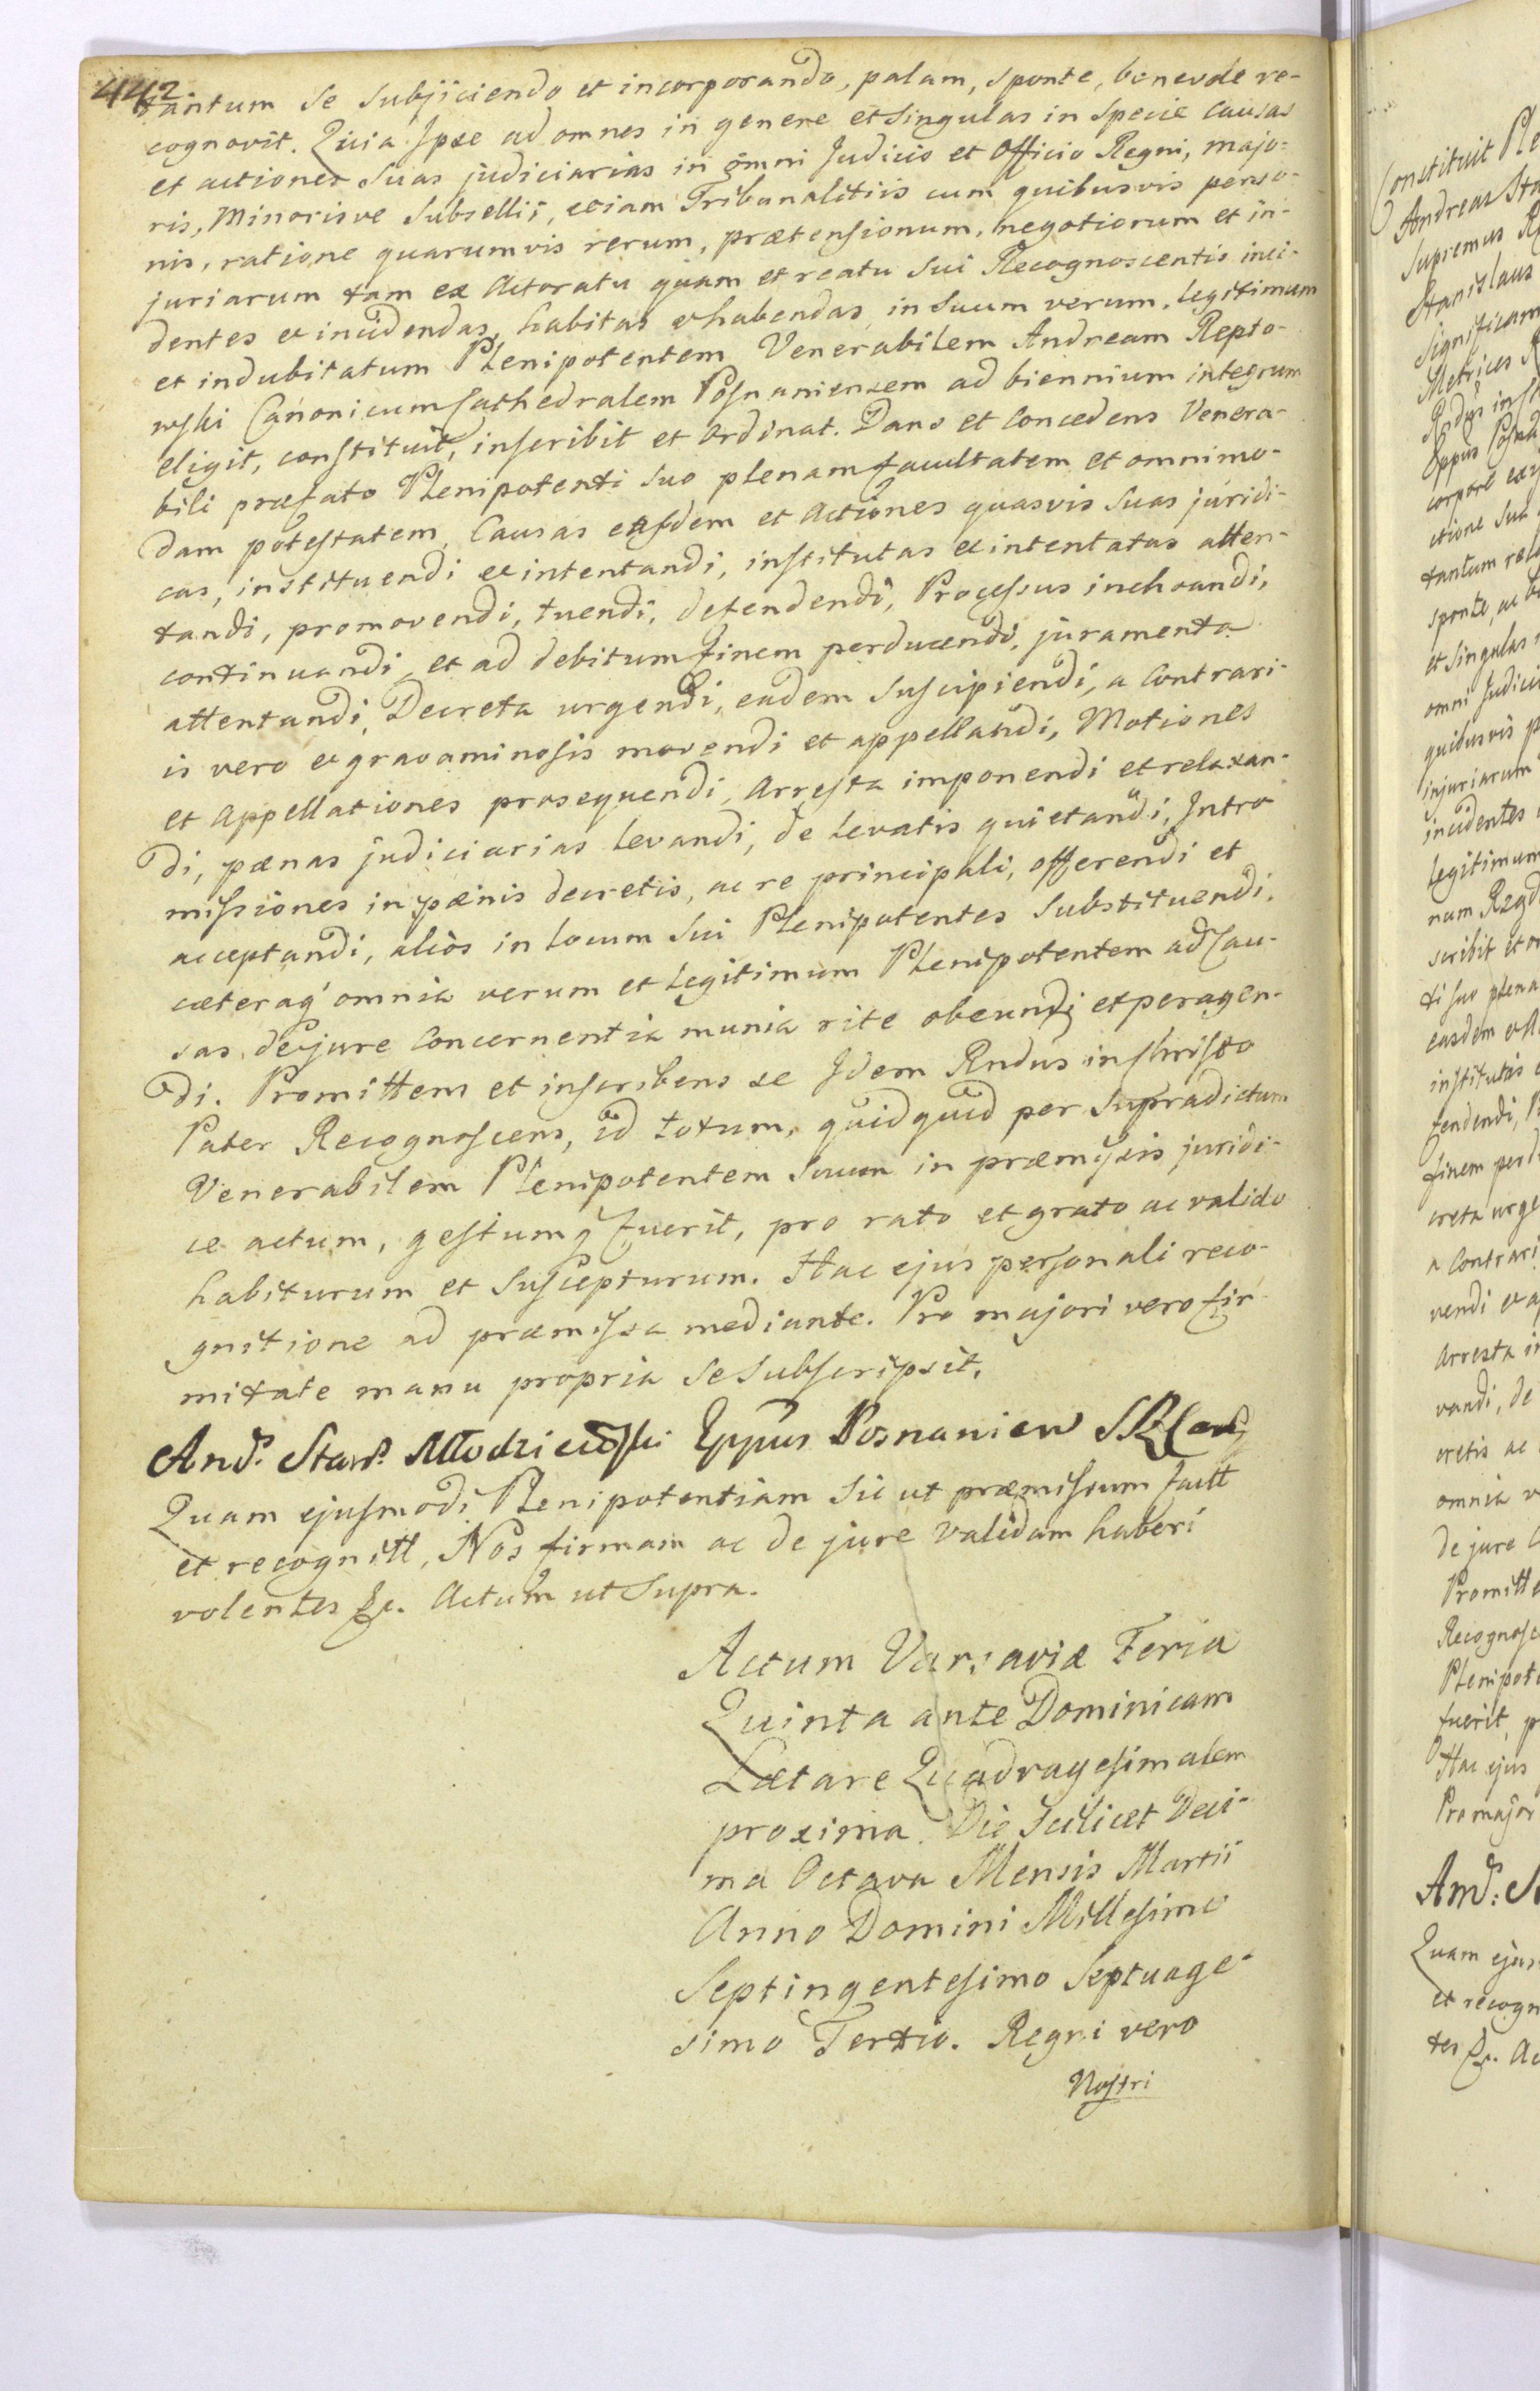 442
tantum se subjiciendo et incorporando, palam, sponte, benevole re-
cognovit. Quia Ipse ad omnes in genere et singulas in specie causas
et actiones suas judiciarias in omni Judicio et Officio Regni, majo-
ris, Minorisve Subsellii, etiam Tribunalitiis cum quibusvis perso-
nis, ratione quarumvis rerum, prætensionum, negotiorum et in-
juriarum tam ex Actoratu quam et reatu sui Recognoscentis inci-
dentes et incidendas, habitas et habendas, in suum verum, legitimum
et indubitatum Plenipotentem Venerabilem Andream Repto-
wski Canonicum Cathedralem Posnaniensem ad biennium integrum
eligit, constituit, inscribit et ordinat. Dans et Concedens Venera-
bili præfato Plenipotenti suo plenam facultatem et omnimo-
dam potestatem, Causas easdem et Actiones quasvis suas juridi-
cas, instituendi et intentandi, institutas et intentatas atten-
tandi, promovendi, tuendi, defendendi, Processus inchoandi,
continuandi, et ad debitum finem perducendi, juramenta
attentandi, Decreta urgendi, eadem suscipiendi, a Contrari-
is vero et gravaminosis movendi et appellandi, Motiones
et Appellationes prosequendi, Arresta imponendi et relaxan-
di, pænas judiciarias levandi, de levatis quietandi, Intro
missiones in pænis decretis, ac re principali, offerendi et
acceptandi, alios in locum sui Plenipotentes substituendi,
cæteraq' omnia verum et legitimum Plenipotentem ad Cau-
sas de jure Concernentia munia rite obeundi et peragen-
di. Promittens et inscribens se Idem Rndus in Christo
Pater Recognoscens, id totum, quidquid per supradictum
Venerabilem Plenipotentem suum in præmissis juridi-
ce actum, gestumq fuerit, pro rato et grato ac valido
habiturum et suscepturum. Hac ejus personali reco-
gnitione ad præmissa mediante. Pro majori vero fir-
mitate manu propria se subscripsit.
And. Stan. Młodzieiowski Eppus Posnanien
Quam ejusmodi Plenipotentiam sic ut præmissum factt
et recognitt, Nos firmam ac de jure validam haberi
volentes &c. Actum ut supra.
Actum Varsaviæ Feria
Quinta ante Dominicam
Lætare Quadragesimalem
proxima. Die scilicet Deci-
ma Octava Mensis Martii
Anno Domini Millesimo
Septingentesimo Septuage-
simo Tertio. Regni vero
Nostri
Constituit
Andreas
Supremus
Stanislaus
Metrices
corpore
tantum
sponte, ac
et singulas
omni Judici
quibusvis
injuriarum
incidentes
legitimum
scribit et
ti suo plena
easdem
institutas
fendendi,
finem
creta urge
a Contrari
vendi et
Arresta
vandi, de
cretis ac
omnia
de jure
Promitte
Recognosc
Plenipot
fuerit,
Hac ejus
Pro major
And:
Quam ejus
et recogn
tes &c.